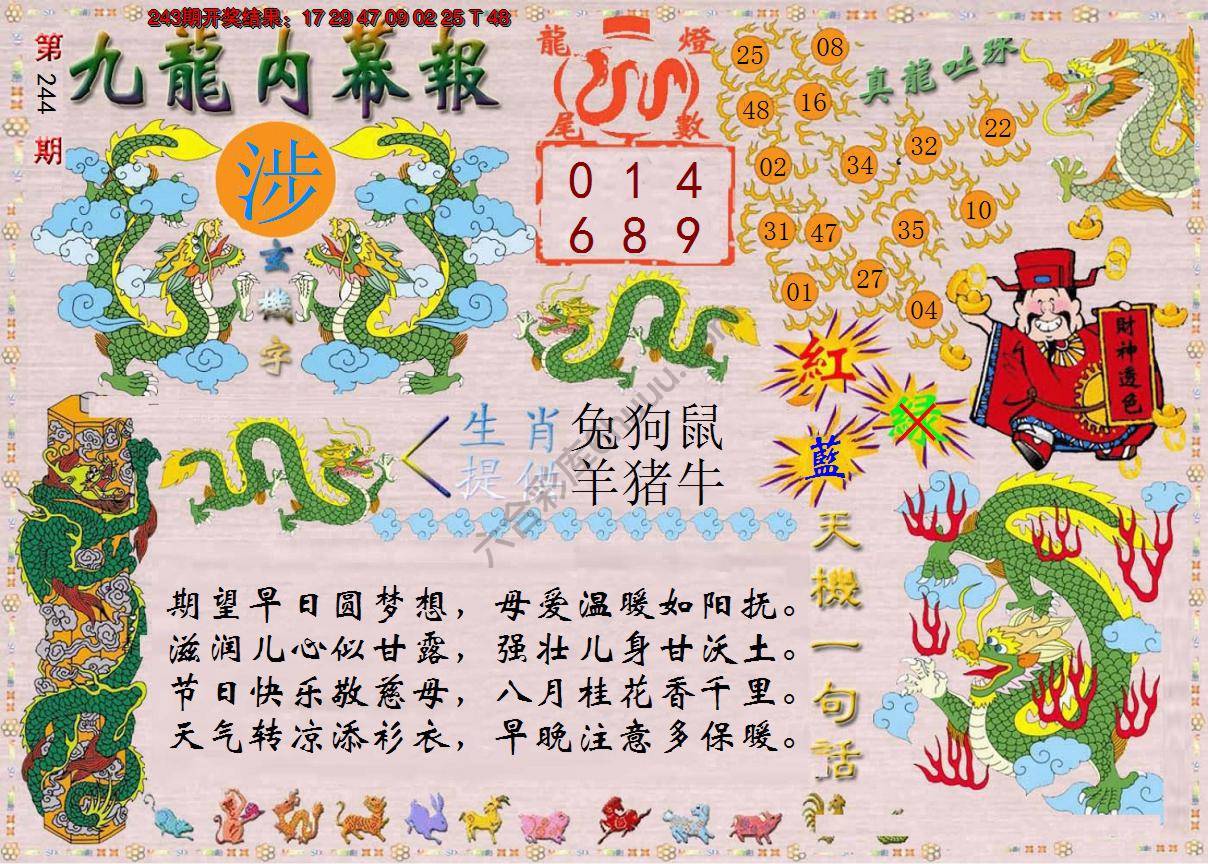 243期开奖结果：17 29 47 09 02 25 T 48
第244期
九龍内幕報
涉
玄機字
龍燈
尾數
0 1 4
6 8 9
真龍吐珠
25 08
48 16
02 34 32 22
31 47 35 10
01 27 04
財神透色
紅
綠
藍
生肖 兔狗鼠
提供 羊猪牛
期望早日圆梦想，母爱温暖如阳抚。
滋润儿心似甘露，强壮儿身甘沃土。
节日快乐敬慈母，八月桂花香千里。
天气转凉添衫衣，早晚注意多保暖。
天機一句話